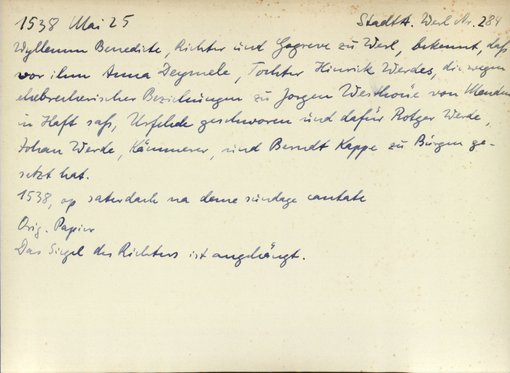 1538 Mai 25 StadtA. Werl Nr. 284
Wyllemm Benedite, Richter und Gogreve zu Werl, bekennt, daß
vor ihm Anna Deymele, Tochter Hinrik Werdes, die wegen
ehebrecherischer Beziehungen zu Jorgen Westhoue von Menden
in Haft saß, Urfehde geschworen und dafür Rotger Werde,
Johan Werde, Kämmerer, und Berndt Kappe zu Bürgen ge-
setzt hat.
1538, op saterdach na deme sundage cantate
Orig. Papier
Das Siegel des Richters ist angehängt.